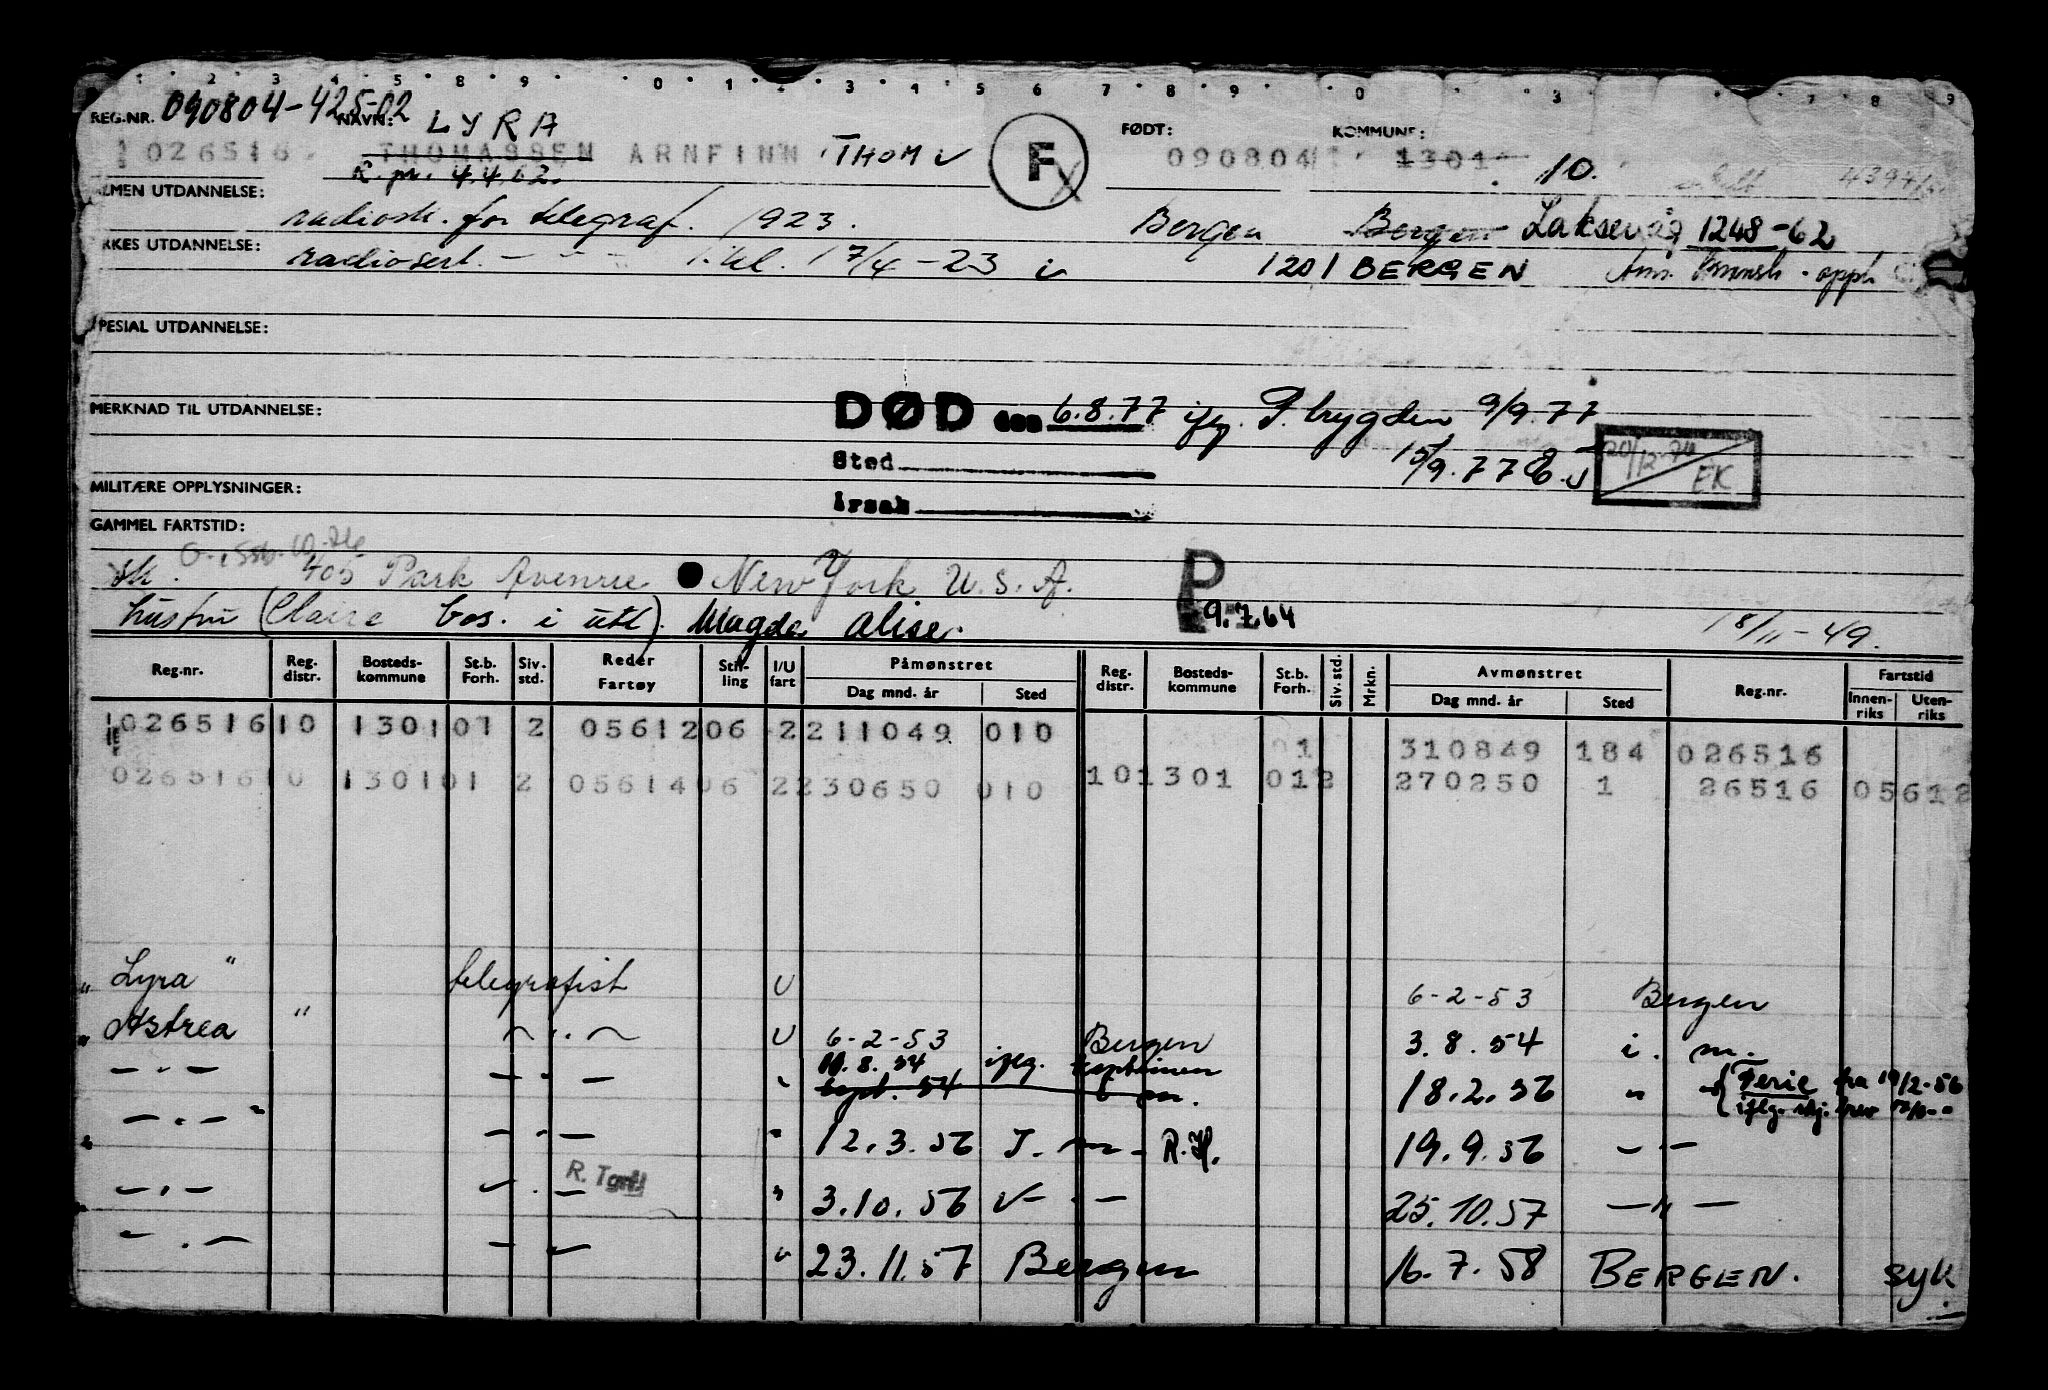 1 2 3 4 5 8 9 0 1 2 3 4 5 6 7 8 9 0 3 7 8 9
REG.NR. 090804-425-02 NAVN: LYRA FØDT: KOMMUNE:
026516 THOMASSEN ARNFINN THOM F 090804 1301 10.
R. pr. 4.4.62.
LMEN UTDANNELSE: radiosk. for telegraf. 1923. Bergen Bergen Laksevåg 1248-62
RKES UTDANNELSE: radiosert. - " - 1. kl. 17/4-23 1201 BERGEN
SPESIAL UTDANNELSE:
MERKNAD TIL UTDANNELSE: DØD den 6.8.77 ifg. P. trygden 9/9.77
Sted 15/9.77
20/12.74 EK
MILITÆRE OPPLYSNINGER: Årsak
GAMMEL FARTSTID:
sk. 405 Park Avenue New York U.S.A. P
hustru (Claire bos. i utl). Magda Alise. 9.7.64 18/11-49.
Reg.nr. Reg. distr. Bosteds-kommune St.b. Forh. Siv. std. Reder Fartøy Stil-ling I/U fart Påmønstret Dag mnd. år Sted Reg. distr. Bosteds-kommune St.b. Forh. Siv. std. Mrkn. Avmønstret Dag mnd. år Sted Reg.nr. Fartstid Innen-riks Uten-riks
026516 10 1301 01 2 05612 06 2 211049 010 1 310849 184 026516
026516 10 1301 01 2 05614 06 2 230650 010 10 1301 01 2 270250 1 26516 05612
" Lyra " telegrafist U 6-2-53 Bergen
" Astrea " - " - U 6-2-53 Bergen 3.8.54 i. m.
- " - - " - " 10.8.54 iflg. kapteinen 18.2.56 " { Ferie fra 19/2-56
sept. 54 m. iflg. skj. brev
- " - - " - " 12.3.56 I. m - R.H. 19.9.56 - " -
- " - - " - R. Tgrf. " 3.10.56 - " - 25.10.57 - " -
- " - - " - " 23.11.57 Bergen 16.7.58 BERGEN. syk.